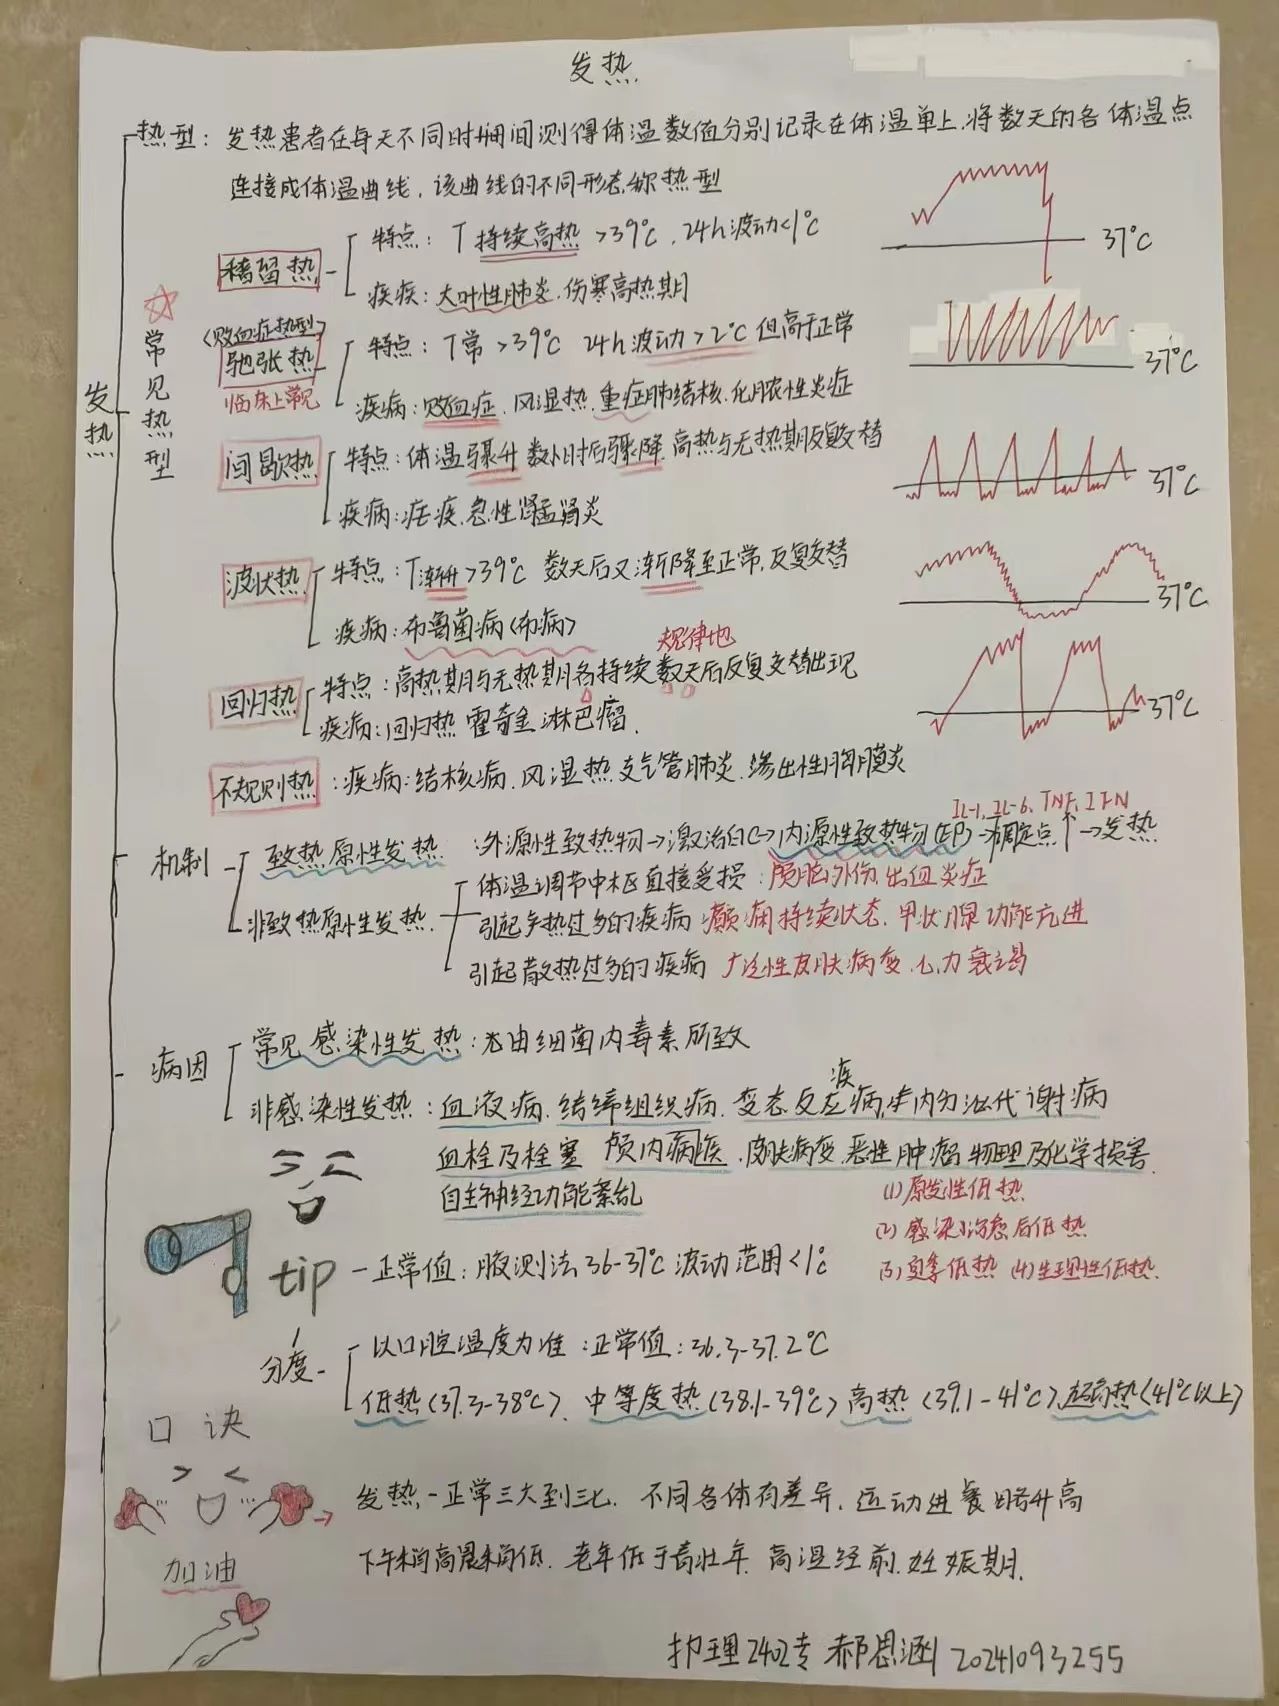 发热
热型：发热患者在每天不同时间测得体温数值分别记录在体温单上，将数天的各体温点
连接成体温曲线，该曲线的不同形态称热型
发热
☆常见热型
稽留热
特点：T持续高热>39℃，24h波动<1℃
疾疾：大叶性肺炎，伤寒高热期
37℃
〈败血症热型〉
驰张热
临床上常见
特点：T常>39℃ 24h波动>2℃但高于正常
疾病：败血症，风湿热，重症肺结核，化脓性炎症
37℃
间歇热
特点：体温骤升 数小时后骤降 高热与无热期反复交替
疾病：疟疾，急性肾盂肾炎
37℃
波状热
特点：T渐升>39℃ 数天后又渐降至正常，反复交替
疾病：布鲁菌病〈布病〉
37℃
规律地
回归热
特点：高热期与无热期各持续数天后反复交替出现
疾病：回归热 霍奇金 淋巴瘤.
37℃
不规则热：疾病：结核病，风湿热 支气管肺炎，渗出性胸膜炎
IL-1，IL-6，TNF，IFN
机制
致热原性发热：外源性致热物→激活白C→内源性致热物(EP)→调定点↑→发热
非致热原性发热
体温调节中枢直接受损：颅脑外伤，出血炎症
引起产热过多的疾病 癫痫持续状态，甲状腺功能亢进
引起散热过多的疾病 广泛性皮肤病变，心力衰竭
病因
常见感染性发热：尤由细菌内毒素所致
非感染性发热：血液病，结缔组织病，变态反应疾病，内分泌代谢病
血栓及栓塞 颅内病 皮肤病变，恶性肿瘤 物理及化学损害
自主神经功能紊乱
(1)原发性低热
(2)感染治愈后低热
(3)夏季低热 (4)生理性低热.
tip - 正常值：腋测法36-37℃ 波动范围<1℃
分度-
以口腔温度为准：正常值：36.3-37.2℃
低热(37.3-38℃)、中等度热(38.1-39℃) 高热(39.1-41℃)，超高热(41℃以上)
口诀
发热,-正常三六到三七. 不同个体有差异，运动进餐略升高
下午稍高晨稍低. 老年低于青壮年 高温经前，妊娠期.
加油
护理2402专 郝恩涵 20241093255